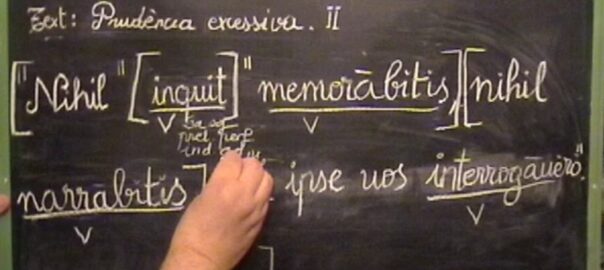 Text: Prudência excessiva. II
["Nihil" [inquit] "memorābitis,] [nihil
V V
pret perf
ind
narrābitis] ipse uos interrogāuero".
V V
]